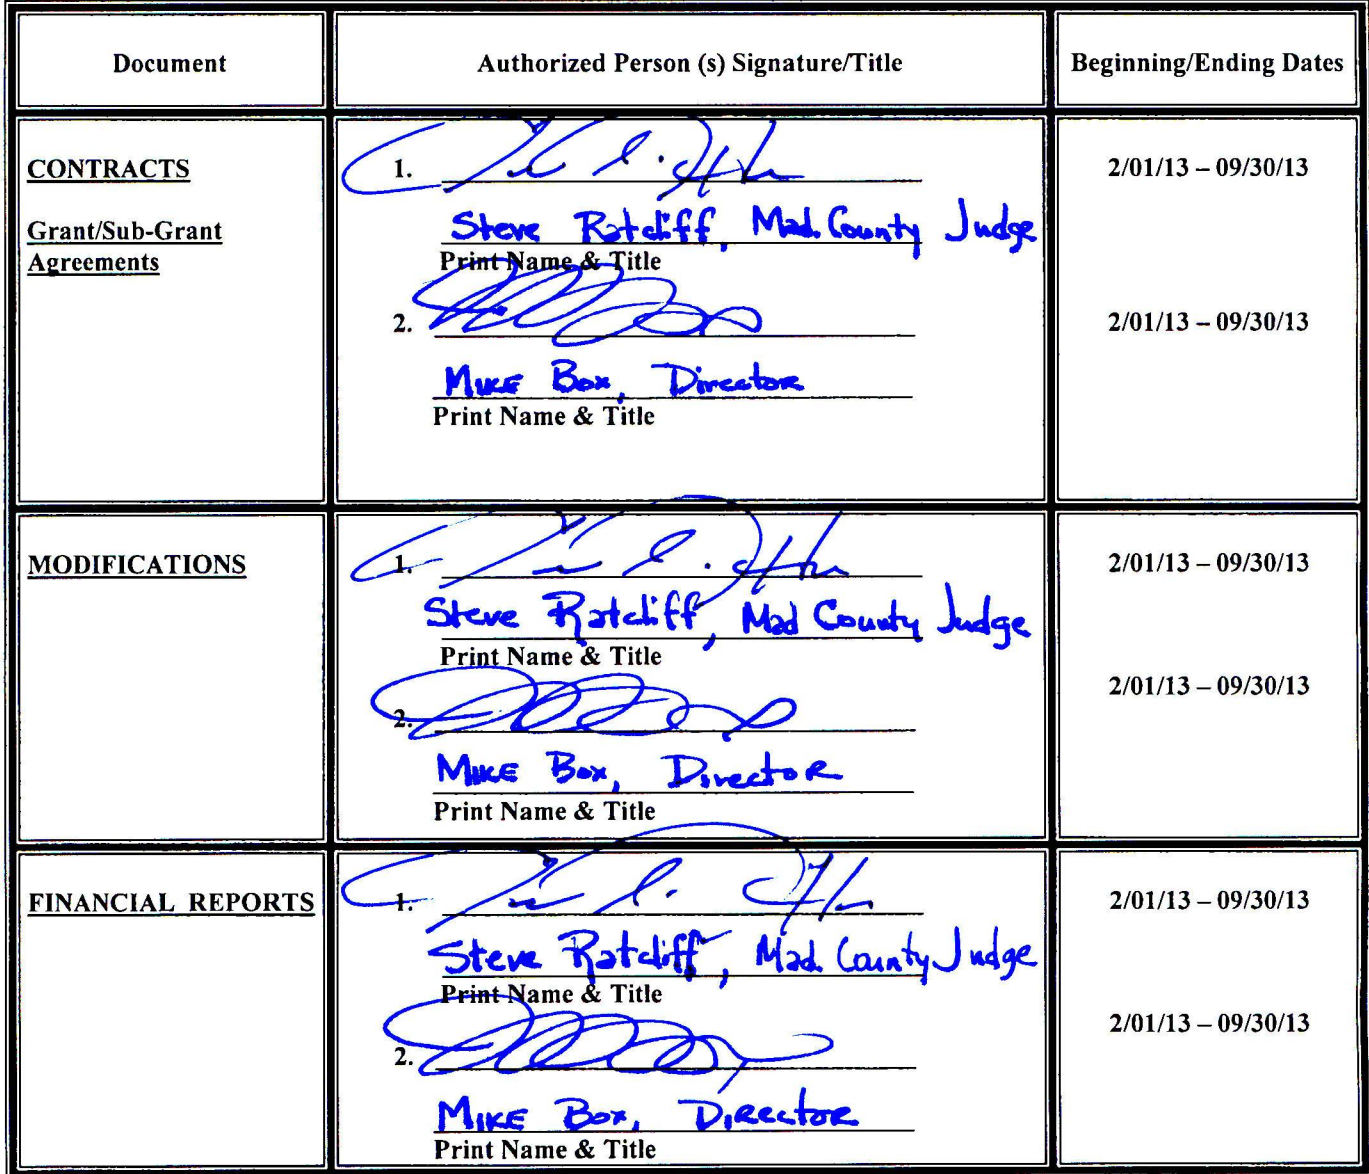 Document
Authorized Person (s) Signature/Title
Beginning/Ending Dates
CONTRACTS
Grant/Sub-Grant
Agreements
1.
Steve Ratcliff, Mad. County Judge
Print Name & Title
2.
Mike Box, Director
Print Name & Title
2/01/13 – 09/30/13
2/01/13 – 09/30/13
MODIFICATIONS
1.
Steve Ratcliff, Mad County Judge
Print Name & Title
2.
Mike Box, Director
Print Name & Title
2/01/13 – 09/30/13
2/01/13 – 09/30/13
FINANCIAL REPORTS
1.
Steve Ratcliff, Mad. County Judge
Print Name & Title
2.
Mike Box, Director
Print Name & Title
2/01/13 – 09/30/13
2/01/13 – 09/30/13